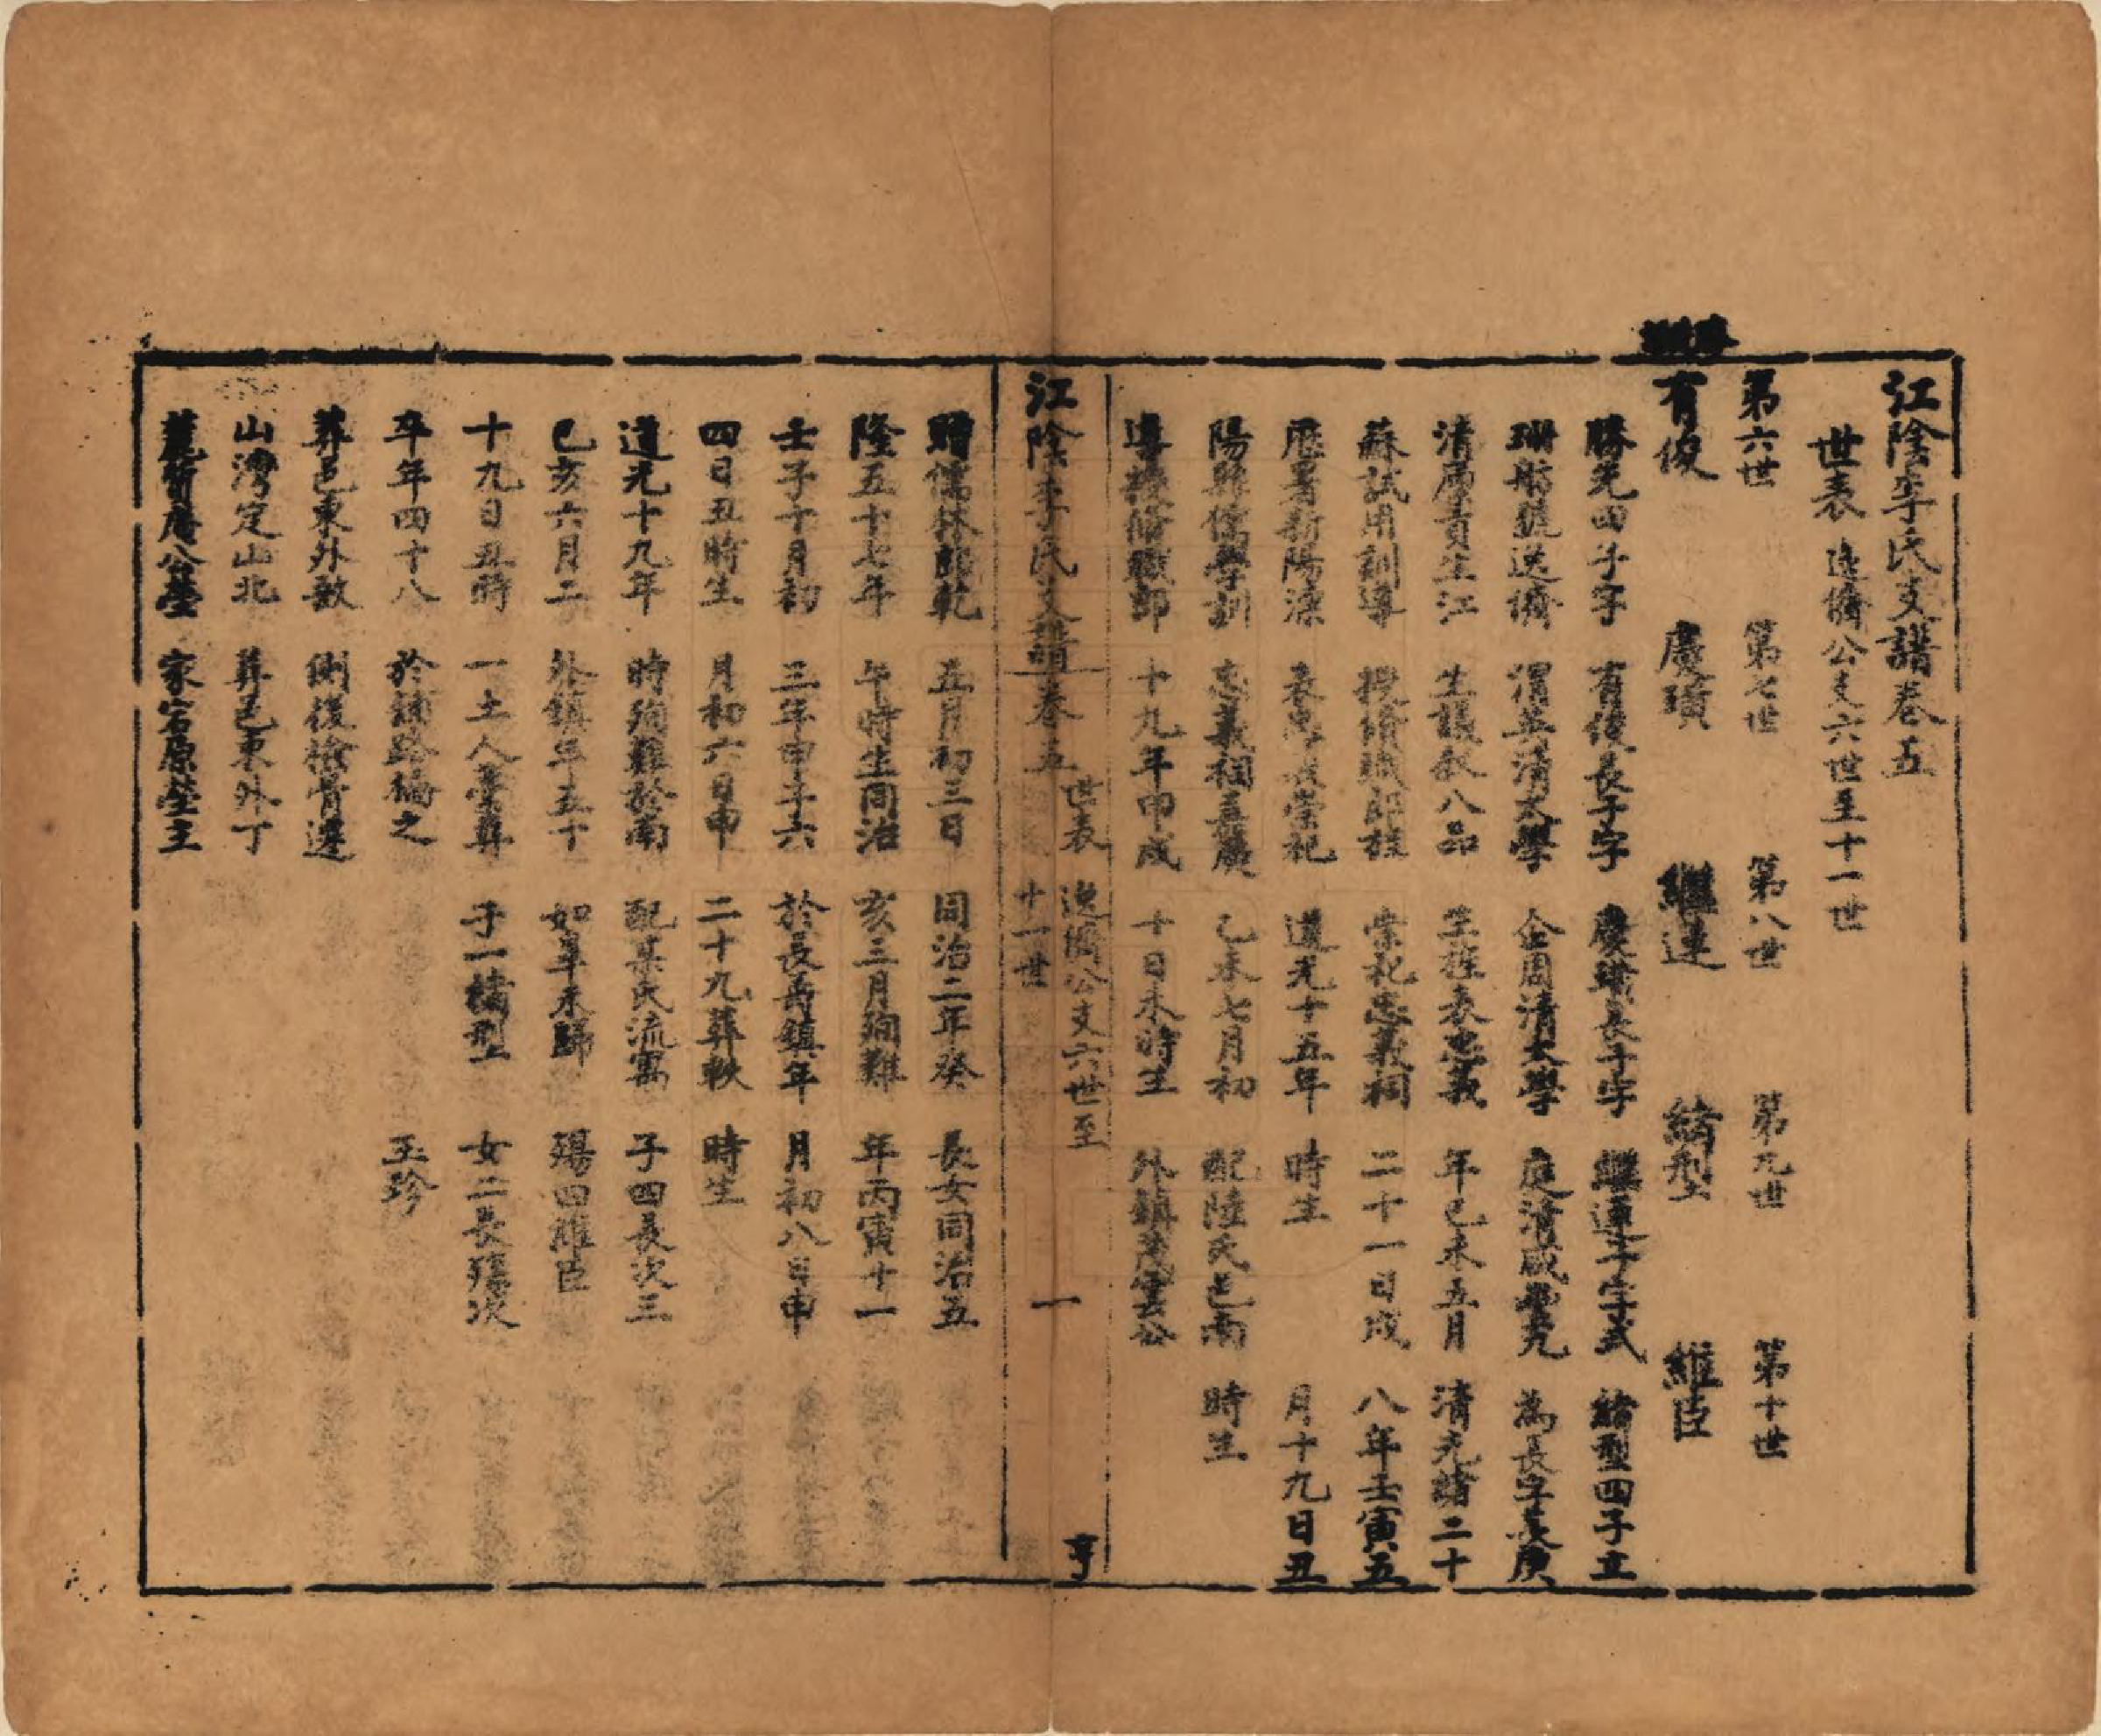 江陰李氏支譜卷五
世表 逸儕公支六世至十一世
第六世 第七世 第八世 第九世 第十世
有俊 慶璜 繼連 綺型 維臣
勝先四子字 有俊長子字 慶璜長子字 繼連子字式 綺型四子立
珊舫號逸儕 渭英清太學 企周清太學 庭清咸豐九 為長字長庚
清廩貢生江 生議敘八品 生旌表忠義 年己未五月 清光緒二十
蘇試用訓導 授修職郎旌 崇祀忠義祠 二十一日戌 八年壬寅五
歷署新陽溧 表忠義崇祀 道光十五年 時生 月十九日丑
陽縣儒學訓 忠義祠嘉慶 乙未七月初 配陸氏邑南 時生
導授修職郎 十九年甲戌 十日未時生 外鎮茂雲公
江陰李氏支譜卷五 世表 逸儕公支六世至十一世 一 亨
贈儒林郎乾 五月初三日 同治二年癸 長女同治五
隆五十七年 午時生同治 亥三月殉難 年丙寅十一
壬子十月初 三年甲子六 於長壽鎮年 月初八日申
四日丑時生 月初六日申 二十九葬軼 時生
道光十九年 時殉難於南 配某氏流寓 子四長次三
己亥六月二 外鎮年五十 如臯未歸 殤四維臣
十九日丑時 一土人藁葬 子一綺型 女二長殤次
卒年四十八 於舖路橋之 玉珍
葬邑東外敔 側後檢骨遷
山灣定山北 葬邑東外丁
麓庵公塋 家宕原塋主